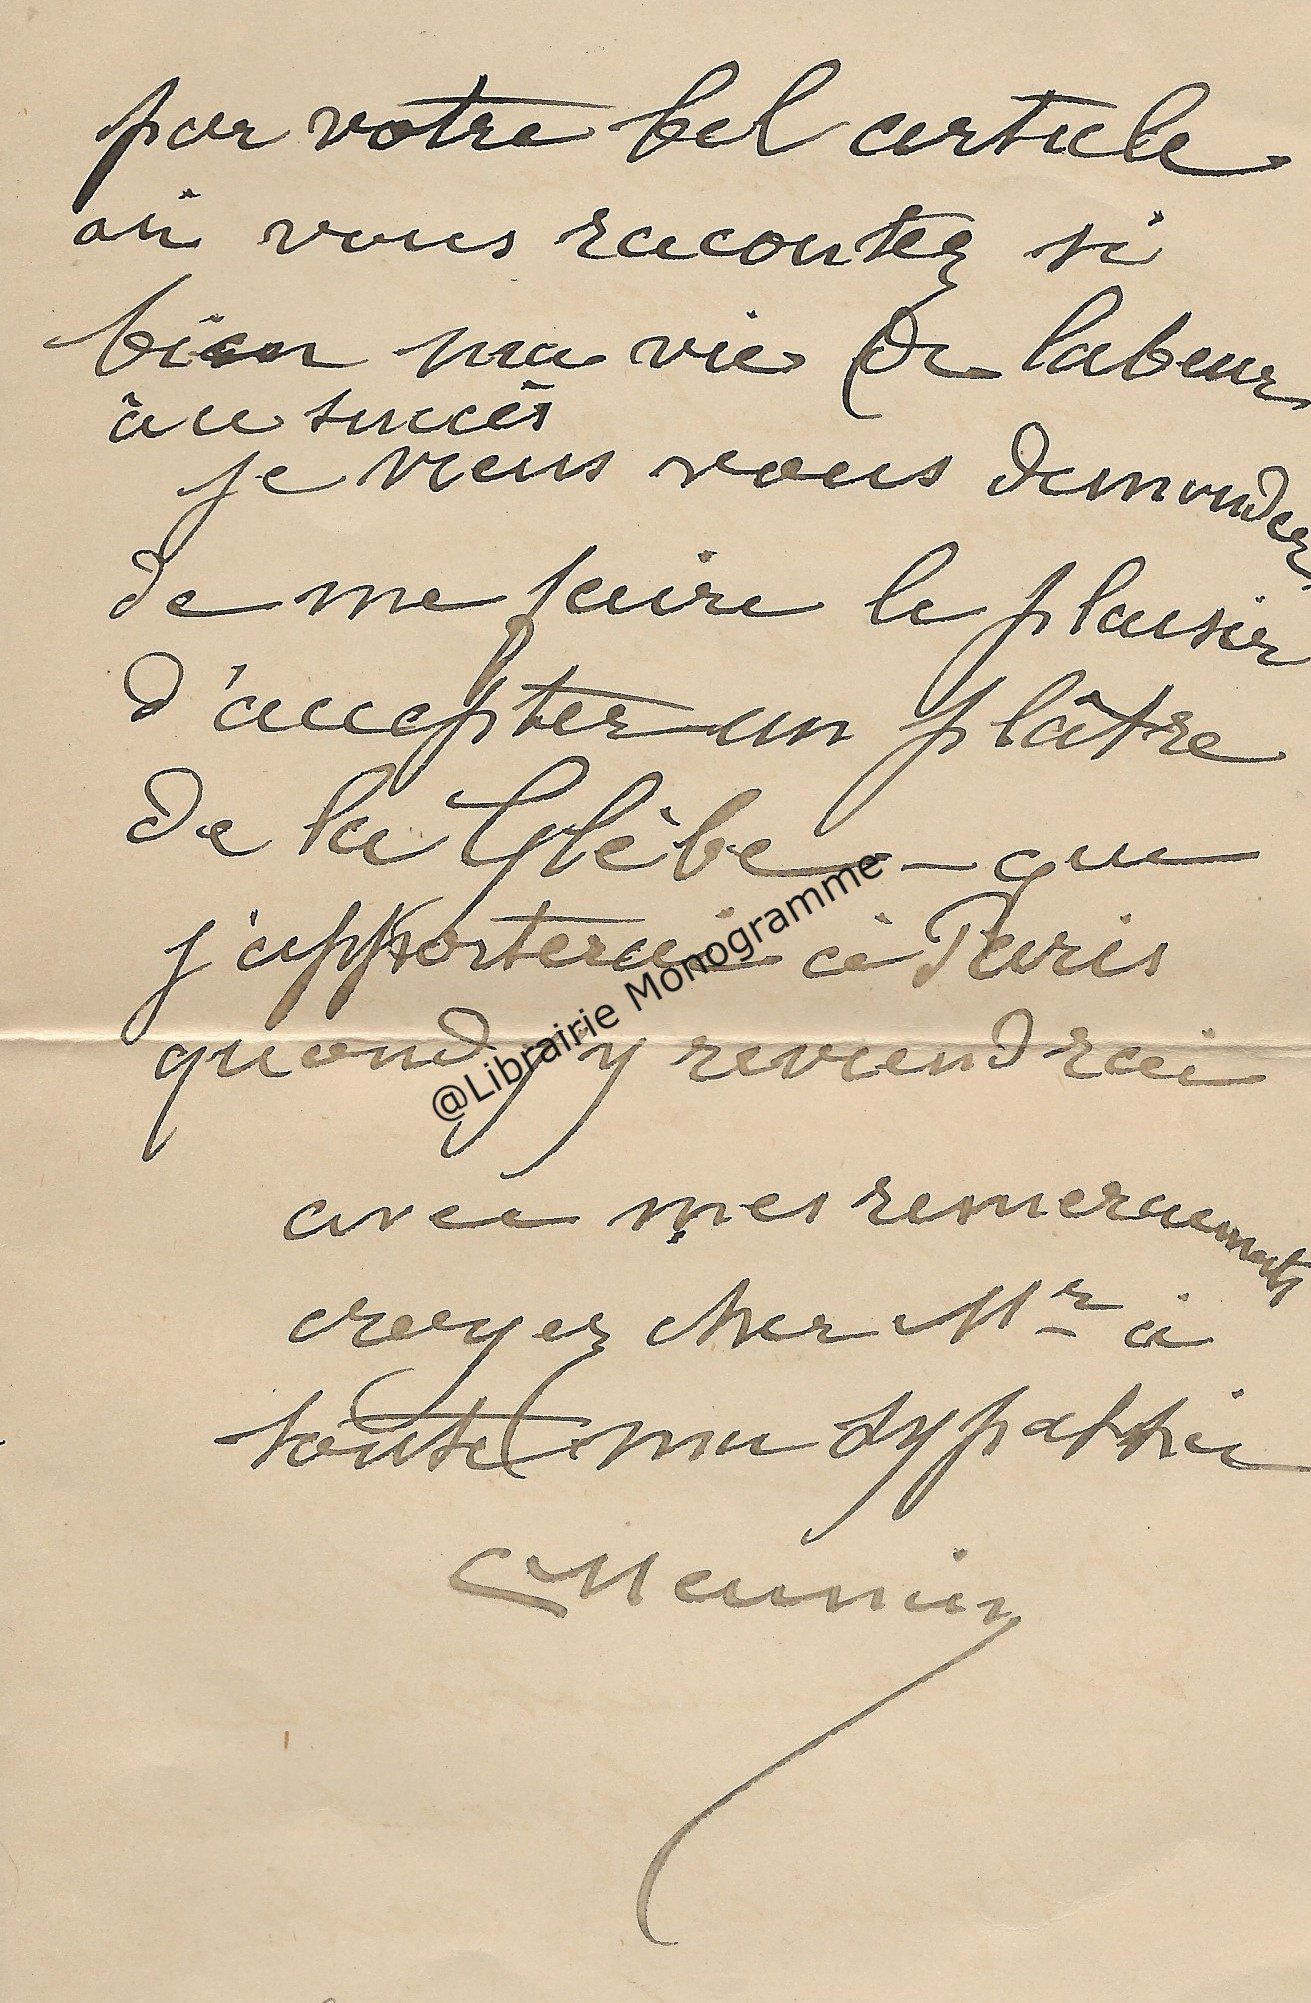 par votre bel article
où vous racontez si
bien ma vie de labeur
au succès
je viens vous demander
de me faire le plaisir
d'accepter un plâtre
de la Glèbe – que
j'apporterai à Paris
quand j'y reviendrai
avec mes remerciements
croyez cher Mr à
toute ma sypathie
CMeunier
@Librairie Monogramme